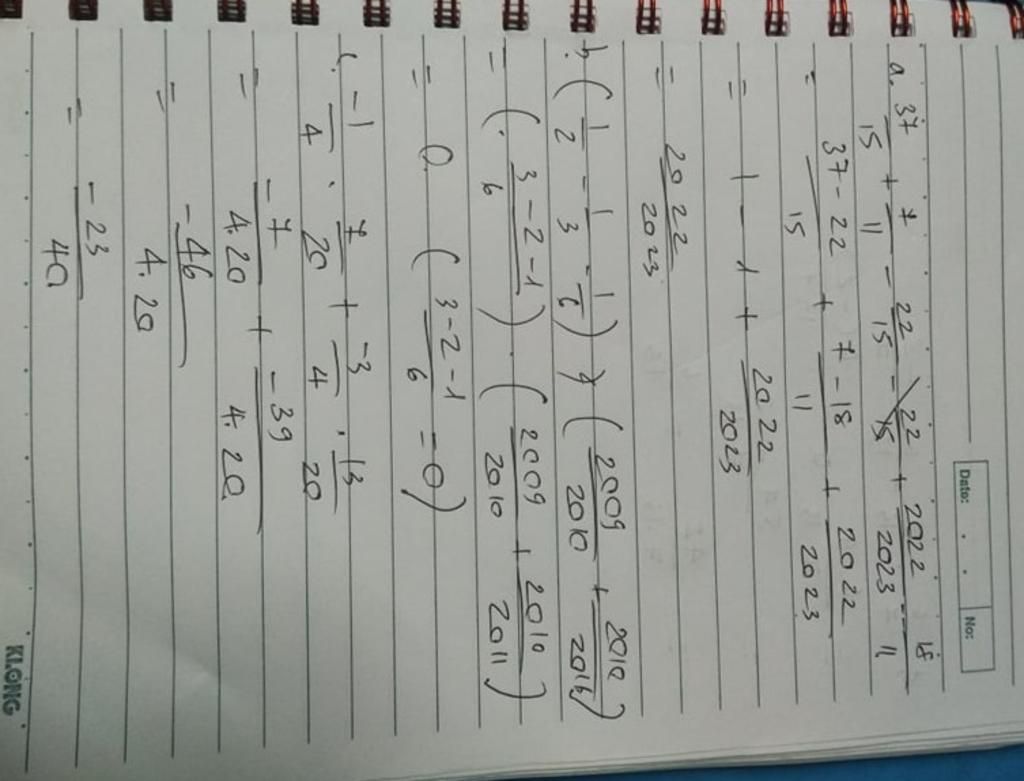 Date: . . No:
a. 37/15 + 7/11 - 22/15 - 22/15 + 2022/2023 - 18/11
= 37-22/15 + 7-18/11 + 2022/2023
= 1 - 1 + 2022/2023
= 2022/2023
b. (1/2 - 1/3 - 1/6) . (2009/2010 + 2010/2011)
= (3-2-1/6) . (2009/2010 + 2010/2011)
= 0 (3-2-1/6 = 0)
c. -1/4 . 7/20 + -3/4 . 13/20
= -7/4.20 + -39/4.20
= -46/4.20
= -23/40
KLONG